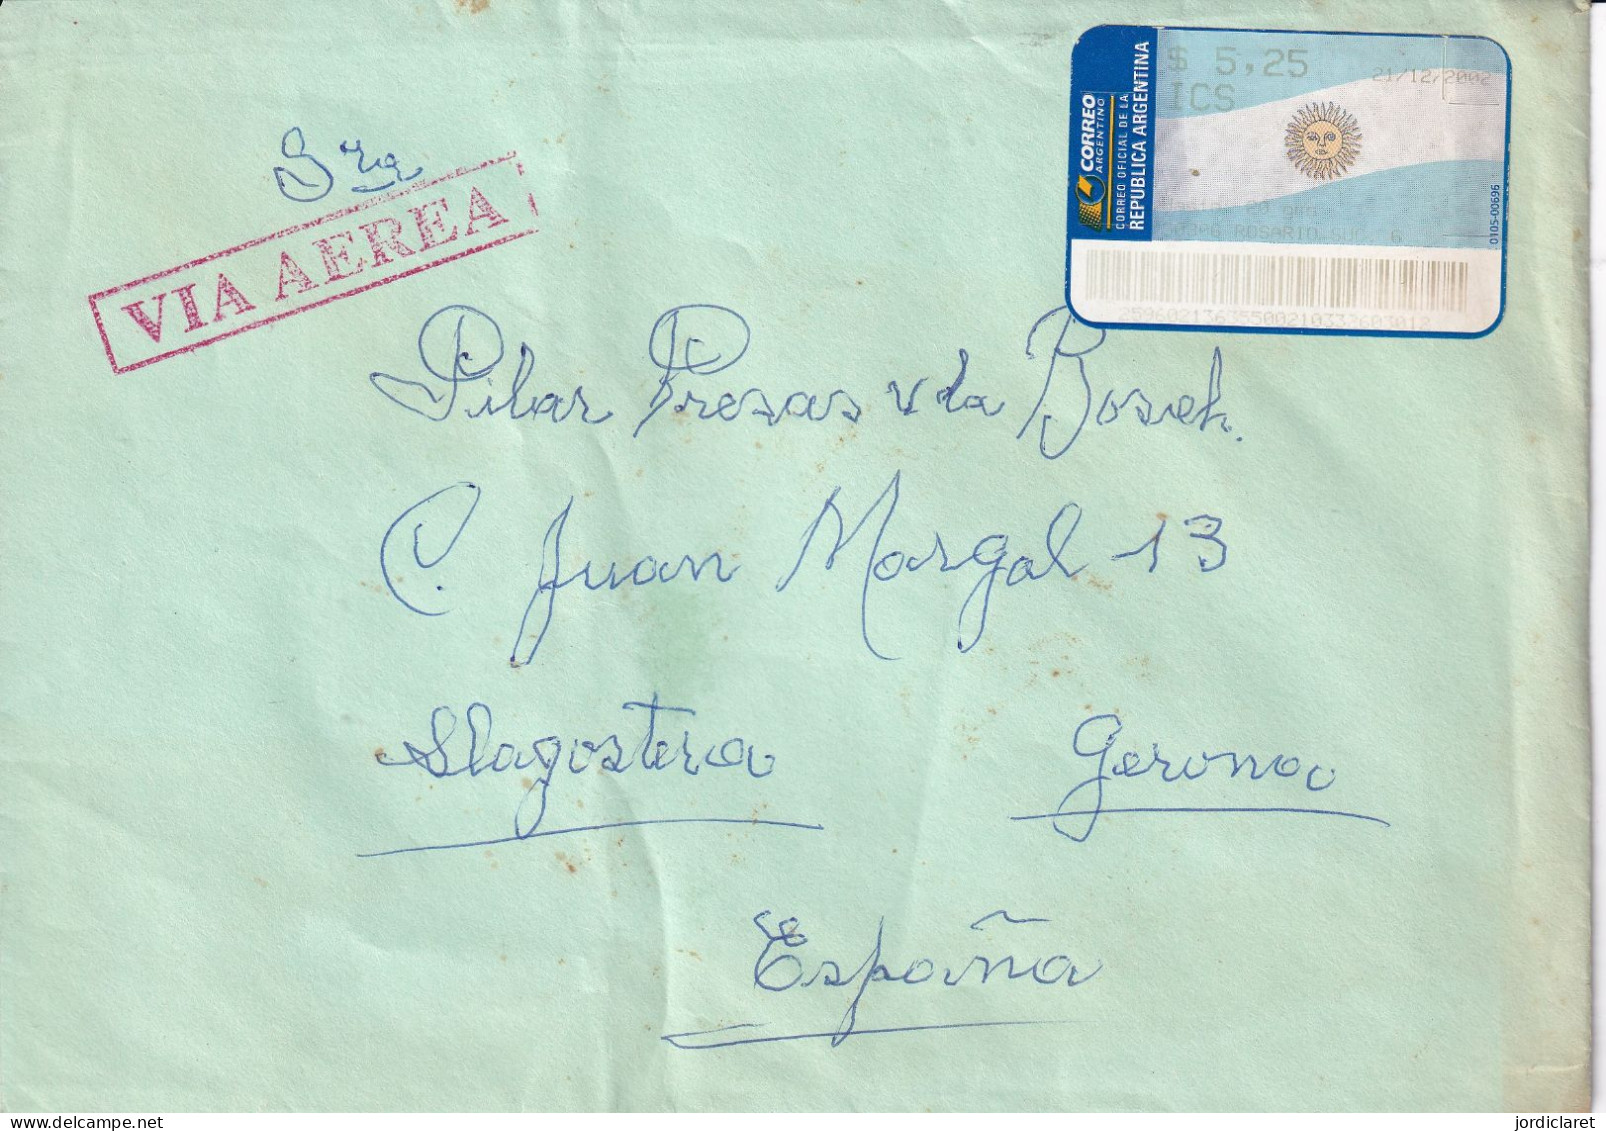 $ 5,25
21/12/2002
ICS
CORREO
ARGENTINO
CORREO OFICIAL DE LA
REPUBLICA ARGENTINA
20 gms
ROSARIO SUC. 6
0105-00696
Sra
VIA AEREA
Pilar Presas vda Bosch.
C. Juan Margal 13
Llagostera Gerona
España
jordiclaret
www.delcampe.net